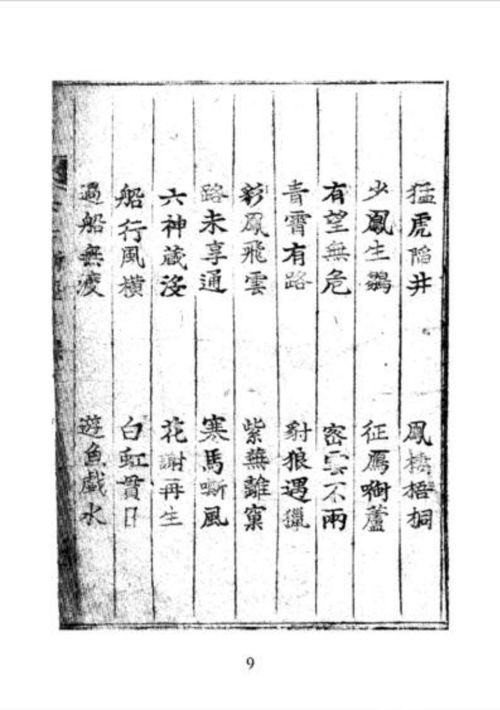 猛虎陷井　鳳棲梧桐
少鳳生　征鴈啣蘆
有望無危　密雲不雨
青霄有路　豺狼遇獵
彩鳳飛雲　紫燕離窠
路未享通　寒馬嘶風
六神藏沒　花謝再生
船行風橫　白虹貫日
過船無　遊魚戲水
9